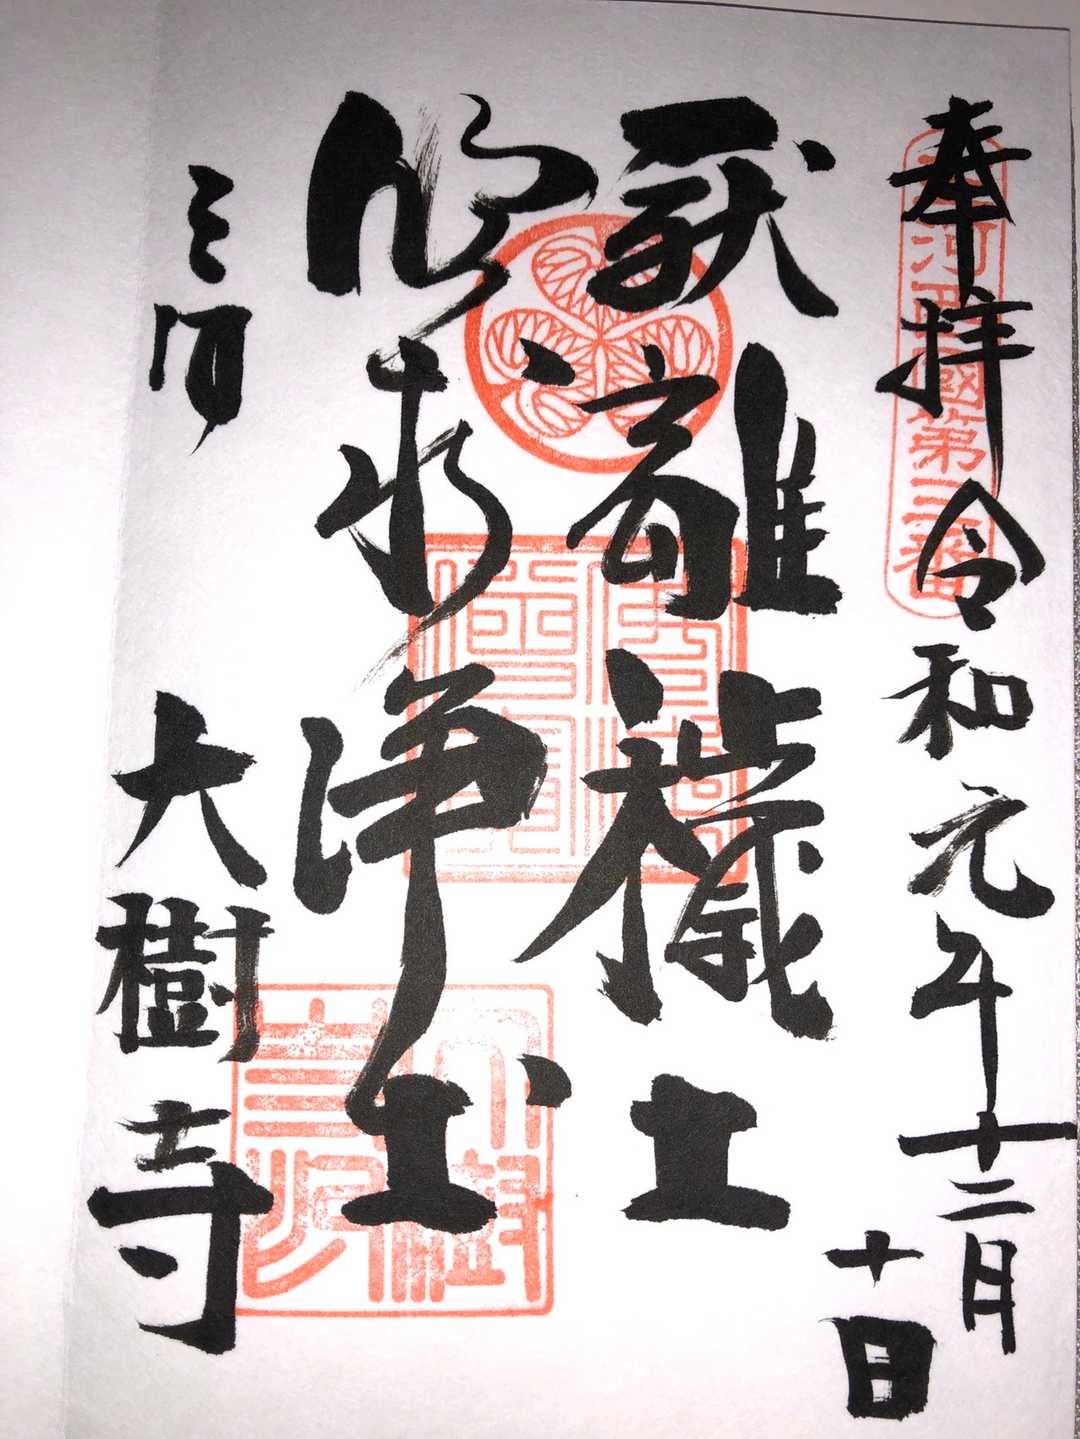 奉拝 令和元年十二月
十日
厭離穢土
欣求浄土
三河
大樹寺